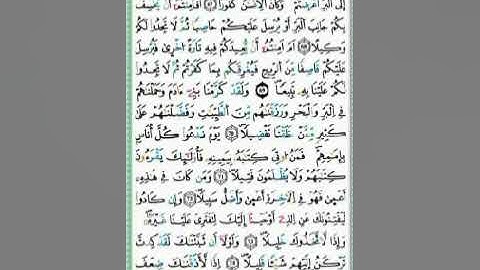 إِلَى اَلْبَرِّ أَعْرَضْتُمْ وَكَانَ اَلْإِنسَٰنُ كَفُورًا أَفَأَمِنتُمْ أَنْ يَّخْسِفَ
بِكُمْ جَانِبَ اَلْبَرِّ أَوْ يُرْسِلَ عَلَيْكُمْ حَاصِبًا ثُمَّ لَا تَجِدُوا لَكُمْ
وَكِيلًا أَمَ اَمِنتُمْ أَنْ يُّعِيدَكُمْ فِيهِ تَارَةً اُخْرَىٰ فَيُرْسِلَ
عَلَيْكُمْ قَاصِفًا مِّنَ اَلرِّيحِ فَيُغْرِقَكُم بِمَا كَفَرْتُمْ ثُمَّ لَا تَجِدُوا
لَكُمْ عَلَيْنَا بِهِۦ تَبِيعًا وَلَقَدْ كَرَّمْنَا بَنِےٓ ءَادَمَ وَحَمَلْنَٰهُمْ
فِے اِلْبَرِّ وَالْبَحْرِ وَرَزَقْنَٰهُم مِّنَ اَلطَّيِّبَٰتِ وَفَضَّلْنَٰهُمْ عَلَىٰ
كَثِيرٍ مِّمَّنْ خَلَقْنَا تَفْضِيلًا يَوْمَ نَدْعُوا كُلَّ أُنَاسٍ
بِإِمَٰمِهِمْ فَمَنُ اوتِيَ كِتَٰبَهُۥ بِيَمِينِهِۦ فَأُوْلَٰٓئِكَ يَقْرَءُونَ
كِتَٰبَهُمْ وَلَا يُظْلَمُونَ فَتِيلًا وَمَن كَانَ فِے هَٰذِهِۦٓ
أَعْمَىٰ فَهُوَ فِے اِلَاخِرَةِ أَعْمَىٰ وَأَضَلُّ سَبِيلًا وَإِن كَادُوا
لَيَفْتِنُونَكَ عَنِ اِلذِےٓ أَوْحَيْنَآ إِلَيْكَ لِتَفْتَرِيَ عَلَيْنَا غَيْرَهُۥ
وَإِذًا لَّاتَّخَذُوكَ خَلِيلًا وَلَوْلَآ أَن ثَبَّتْنَٰكَ لَقَدْ كِدتَّ
تَرْكَنُ إِلَيْهِمْ شَيْـًٔا قَلِيلًا إِذًا لَّأَذَقْنَٰكَ ضِعْفَ